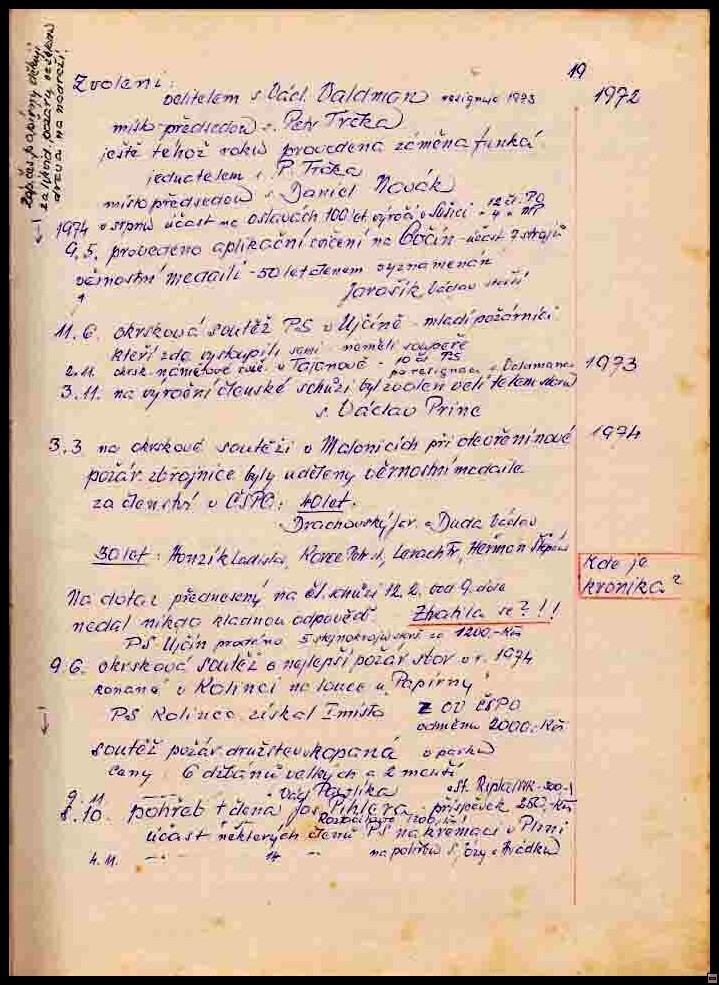 19
Zvoleni:
velitelem s. Václ. Valdman resignuje 1973
1972
místo-předsedou s. Petr Trčka
ještě téhož roku provedena záměna funkcí
jednatelem s. P. Trčka
místopředsedou s. Daniel Novák
1974 v srpnu účast na oslavách 100 let výročí v Sušici - 12 čl. PO
9.5. provedeno aplikační cvičení na Bočín - účast 7 strojů
věrnostní medailí - 50 let členem vyznamenán
Jarošík Václav starší
11.6. okrsková soutěž PS v Ujčíně - mladí požárníci
kteří zde vystoupili sami - neměli soupeře
2.11. okrsk. námětové cvič. v Tajanově - 10 čl. PS
1973
3.11. na výroční členské schůzi byl zvolen velitelem sboru
po resignaci s.
s. Václav Princ
3.3 na okrskové soutěži v Malonicích při otevření nové
1974
požár. zbrojnice byly uděleny věrnostní medaile
za členství v ČSPO: 40 let.
Drachovský Jar. a Duda Václav
30 let: Honzík Ladislav, Petr st., Fr., Heřman Štěpán
Kde je
kronika?
Na dotaz přednesený na čl. schůzi 12.2. bod 9. dosa
nedal nikdo kladnou odpověď Ztratila se?!!
PS Ujčín 1200.-Kčs
9.6. okrsková soutěž o nejlepší požár. sbor v r. 1974
konaná v Kolinci na louce u "Papírny"
PS Kolinec získal I místo Z OV ČSPO
odměnu 2000.-Kčs
soutěž požár. družstev v kopaná v parku
Ceny: 6 džbánů velkých a 2 menší
9.11 Václ. Pavlíka
8.10. pohřeb + člena Jos. Pihlera - příspěvek 250.-Kčs
účast některých členů PS na kremaci v Plzni
4.11. na pohřbu s. v Hrádku
Zap. čes. papírny děkují
za likvid. požáru
dřeva na nádraží!